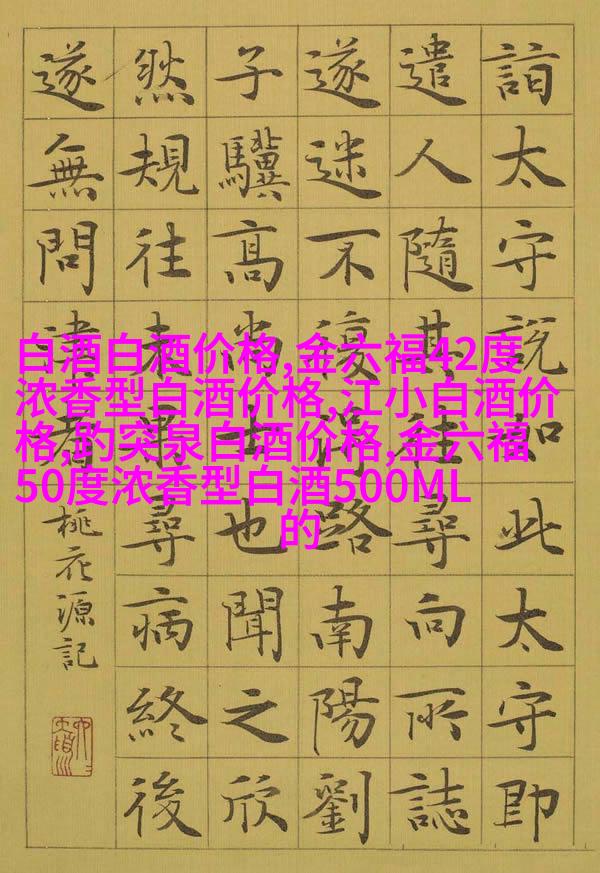 詣太守說如此太守即
遣人隨其往尋向所誌
遂迷不復得路南陽劉
子驥高尚士也聞之欣
然規往未果尋病終後
遂無問津者
桃花源記
白酒白酒价格,金六福42度
浓香型白酒价格,江小白酒价
格,趵突泉白酒价格,金六福
50度浓香型白酒500ML
的